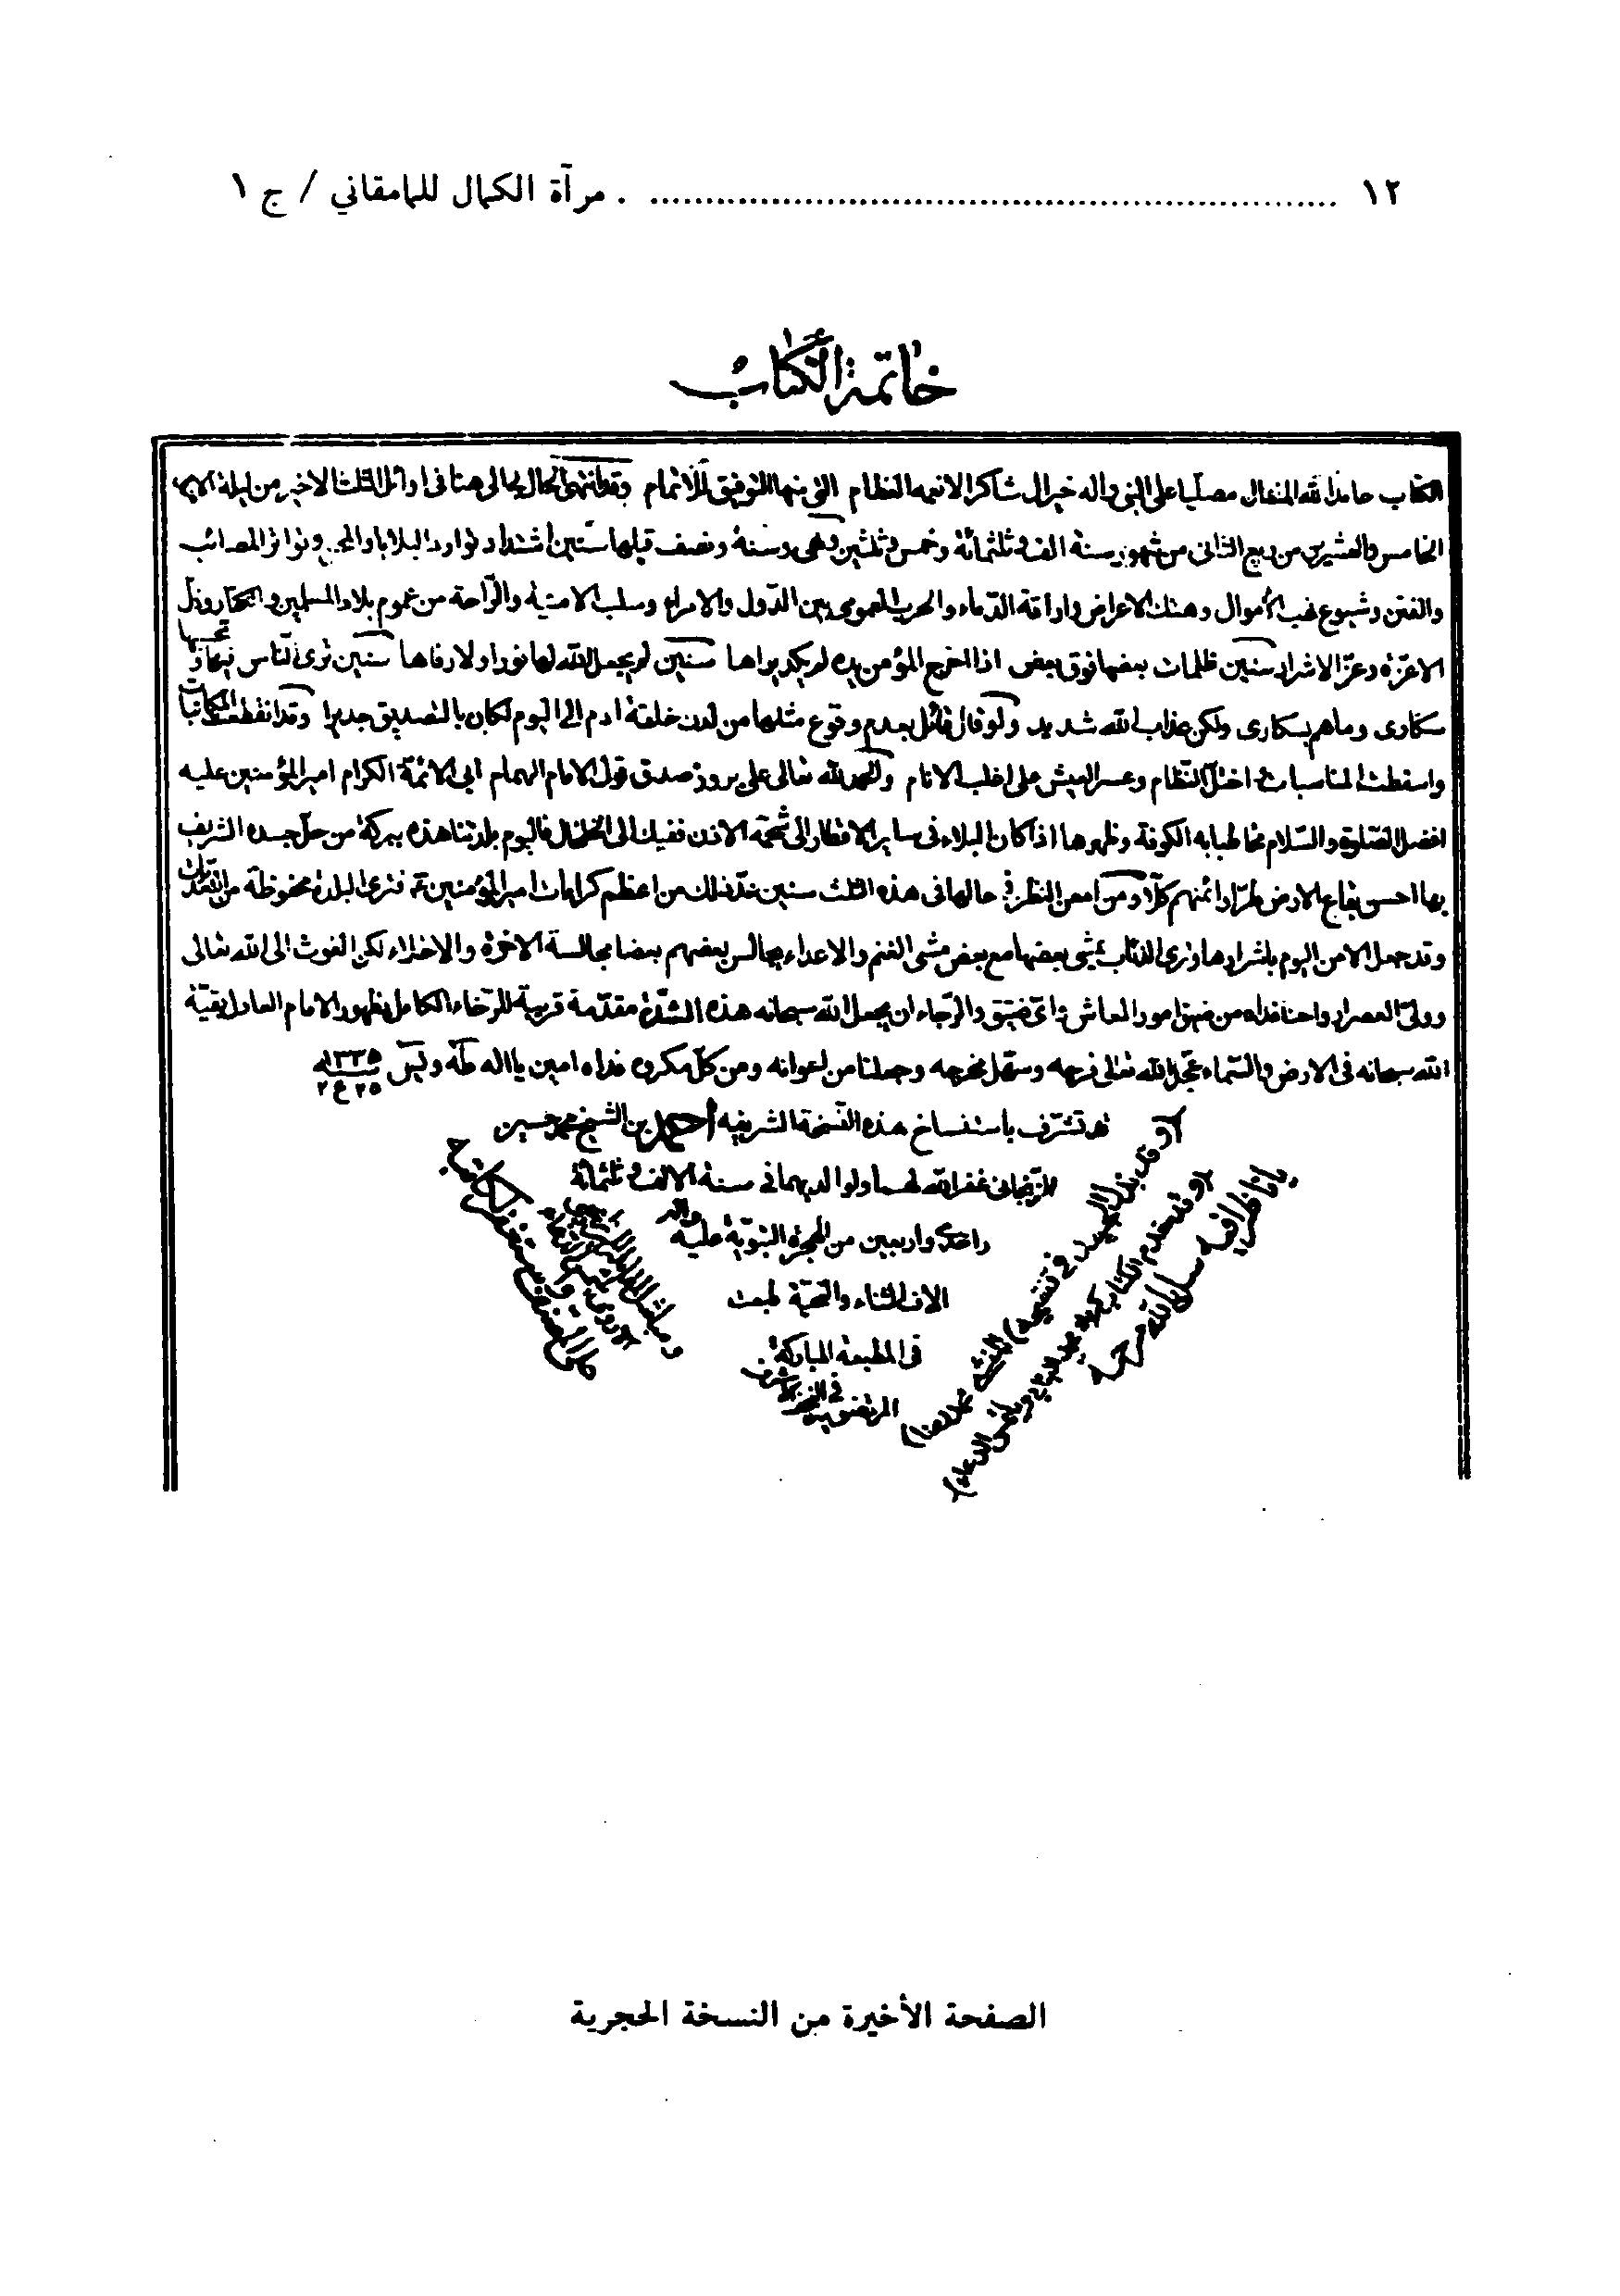 ١٢ ................................................................ . مرآة الكمال للمامقاني / ج ١
خاتمة الكتاب
الكتاب حامدا لله المتعال مصليا على النبي واله خير ال شاكرا لانعمه العظام التي منها التوفيق للاتمام وقد انتهى الحال بي الى هنا في اوائل الثلث الاخير من ليلة
الخامس والعشرين من ربيع الثاني من شهور سنة الف وثلثمائة وخمس وثلثين وهي وسنة ونصف قبلها سنين اشتداد توارد البلايا والمحن وتواتر المصائب
والفتن وشيوع نهب الأموال وهتك الاعراض واراقة الدماء والحرب العمومي بين الدول والامراء وسلب الامنية والراحة من عموم بلاد المسلمين والكفار وذل
الاعزة وعز الاشرار سنين ظلمات بعضها فوق بعض اذا اخرج المؤمن يده لم يكد يراها سنين لم يجعل الله لها نورا ولا رفاها سنين ترى الناس فيها
سكارى وما هم بسكارى ولكن عذاب الله شديد ولو قال قائل بعدم وقوع مثلها من لدن خلقة ادم الى اليوم لكان بالتصديق جديرا وقد انقطعت المكاتبات
واسقطت المناسبات اختل النظام وعسر العيش على اغلب الانام والحمد لله تعالى على بروز صدق قول الامام الهمام ابي الائمة الكرام امير المؤمنين عليه
افضل الصلوة والسلام مخاطبا به الكوفة وظهرها اذا كان البلاء في ساير الاقطار الى شحمة الاذن ففيك الى الخلخال فاليوم بلدتنا هذه ببركة من حل جسده الشريف
بها احسن بقاع الارض طرا وائمنهم كلا ومن امعن النظر في حالها في هذه الثلث سنين عد ذلك من اعظم كرامات امير المؤمنين ع فترى البلدة محفوظة من
وقد جعل الامن اليوم باشرارها وترى الذئاب يمشي بعضها مع بعض مشي الغنم والاعداء يجالس بعضهم بعضا مجالسة الاخوة والاخلاء لكن الغوث الى الله تعالى
وولي العصر ارواحنا فداه من ضيق امور المعاش واي ضيق والرجاء ان يجعل الله سبحانه هذه الشدة مقدمة قريبة للرخاء الكامل بظهور الامام العادل بقية
الله سبحانه في الارض والسماء عجل الله تعالى فرجه وسهل مخرجه وجعلنا من اعوانه ومن كل مكروه فداه امين يا اله طه ويس ١٣٣٥ ٢٥ ع ٢
قد تشرف باستنساخ هذه النسخة الشريفة أحمد بن الشيخ محمد حسين
الزنجاني غفر الله لهما ولوالديهما في سنة الالف وثلثمائة
واحد واربعين من الهجرة النبوية عليه واله
الاف الثناء والتحية طبعت
في المطبعة المباركة
المرتضوية في النجف الاشرف
الصفحة الأخيرة من النسخة الحجرية